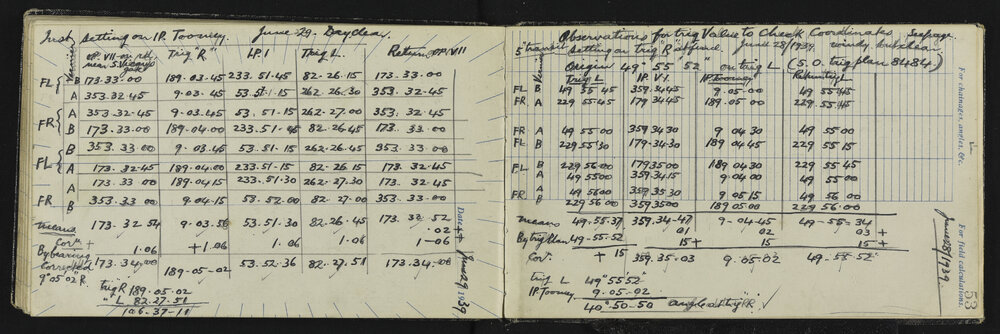 Inst. setting on IP. Toomey. June 29. Dayclear.
Vernier OP. VII on rd, near S. Vicary's gate Trig "R" LP.1 Trig L. Return OP.VII
FL { B 173.33.00 189.03.45 233.51.45 82.26.15 173.33.00
A 353.32.45 9.03.45 53.51.15 262.26.30 353.32.45
FR { A 353.32.45 9.03.45 53.51.15 262.27.00 353.32.45
B 173.33.00 189.04.00 233.51.45 82.26.45 173.33.00
FL { B 353.33.00 9.03.45 53.51.15 262.26.45 353.33.00
A 173.32.45 189.04.00 233.51.15 82.26.15 173.32.45
A 173.33.00 189.04.15 233.51.30 262.27.30 173.32.45
FR B 353.33.00 9.04.15 53.52.00 82.27.00 353.33.00
means 173.32.54 9.03.56 53.51.30 82.26.45 173.32.52
.02
Corr. + 1.06 + 1.06 1.06 1.06 1-06
By bearing
Corrected 173.34.00 189.05.02 53.52.36 82.27.51 173.34.00
9°05'02" R.
trig R 189.05.02
" L 82.27.51
106.37-11
Date June 29 1939
Observations for trig Value to Check Coordinates
5" transit setting on trig "R" June 28/1939. windy but clear.
Origin 49° 55' 52" on trig L (S.O. trig plan 8484.)
Vernier Trig L IP. VI. IP. Toomey Return trig L
FL B 49 55 45 359.34.45 9.05.00 49 55 45
A 229 55 45 179 34 45 189.05.00 229.55.45
FR A 49 55 00 359 34 30 9 04 30 49 55 00
FL B 229 55 30 179.34.30 189 04 45 229 55 15
FL B 229 56 00 179 35 00 189 04 30 229 55 45
A 49 55 00 359.34.15 9 04 00 49 55 00
FR A 49 56 00 359 35 30 9 05 15 49 56 00
B 229 56 00 359.35.00 189 05 00 229 56.00
means 49.55.37 359.34.47 9.04.45 49-55-34
01 02 03 +
By trig Plan 49-55-52 15 + 15 + 15 +
Corr. + 15 359.35.03 9.05.02 49.55.52
trig L 49° 55' 52"
IP. Toomey 9.05.02
40°.50.50 angle at trig "R"
For chainages, angles, &c.
For field calculations.
June 28/1939
53